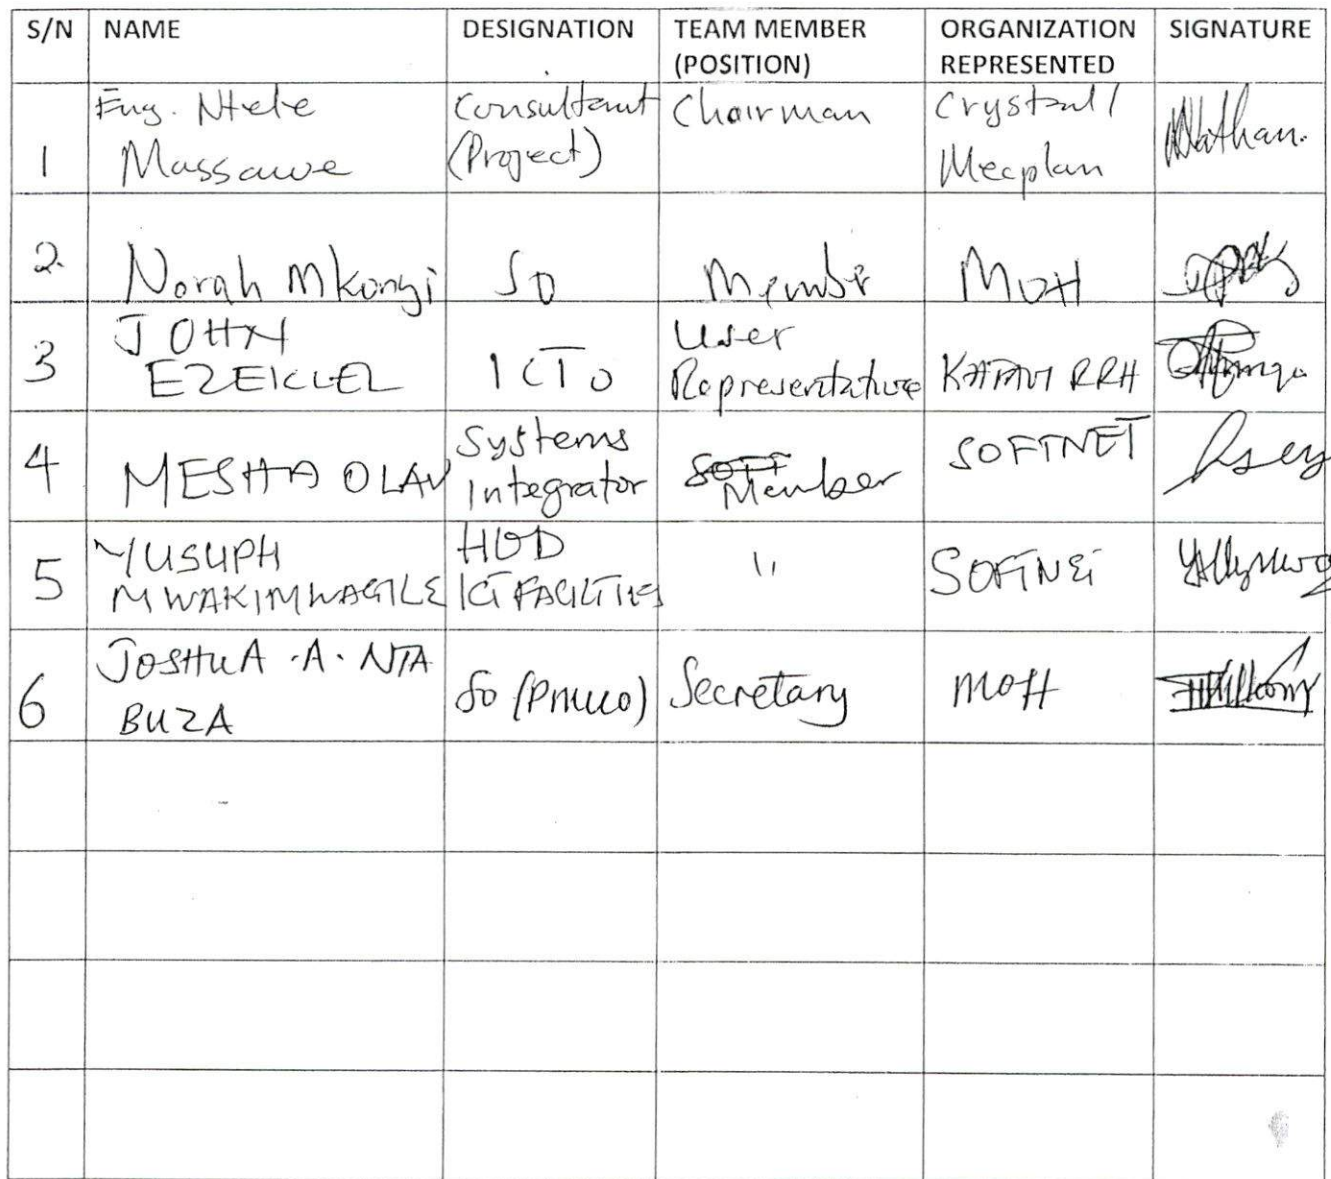 S/N NAME DESIGNATION TEAM MEMBER (POSITION) ORGANIZATION REPRESENTED SIGNATURE
1 Eng. Ntele Massawe Consultant (Project) Chairman Crystal/ Mecplan
2. Norah Mkonyi SO Member MOH
3 JOHN EZEKIEL ICTO User Representative KATAVI RRH
4 MESHA OLAV Systems Integrator Member SOFTNET
5 YUSUPH MWAKIMWAGILE HOD ICT FACILITIES " SOFTNET
6 JOSHUA .A. NTA BUZA SO (PMUO) Secretary MOH